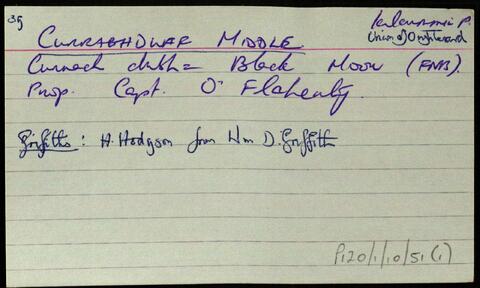 35
Kilcummin P.
Union of Oughterard
CURRAGHDUFF MIDDLE.
Currach dubh = Black Moor (FNB).
Prop. Capt. O'Flaherty.
Griffiths: H. Hodgson from Wm D. Griffith
P120/1/10/51(1)